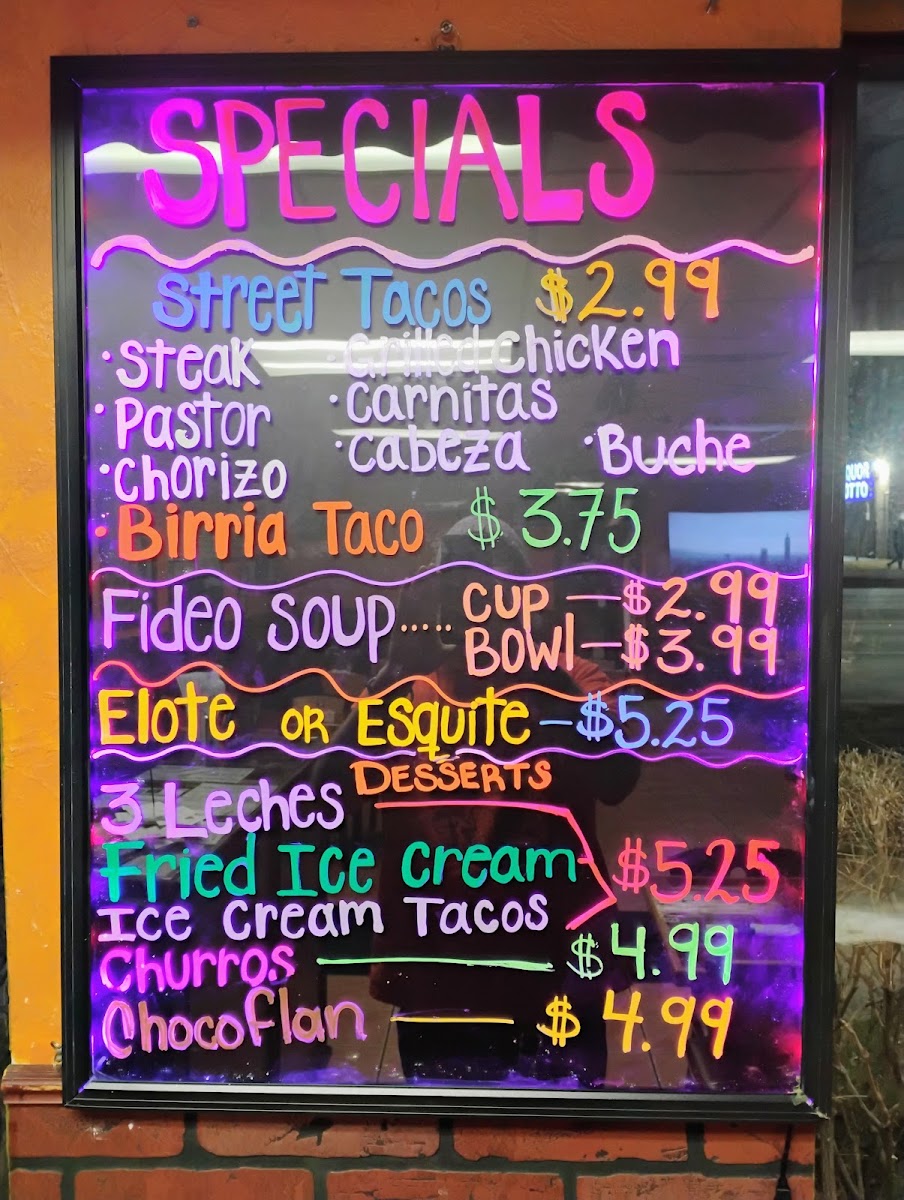 SPECIALS
Street Tacos $2.99
·Steak ·Grilled Chicken
·Pastor ·Carnitas
·Chorizo ·Cabeza ·Buche
·Birria Taco $3.75
Fideo Soup..... CUP —$2.99
BOWl—$3.99
Elote OR Esquite —$5.25
DESSERTS
3 Leches
Fried Ice Cream $5.25
Ice Cream Tacos
Churros — $4.99
Chocoflan — $4.99